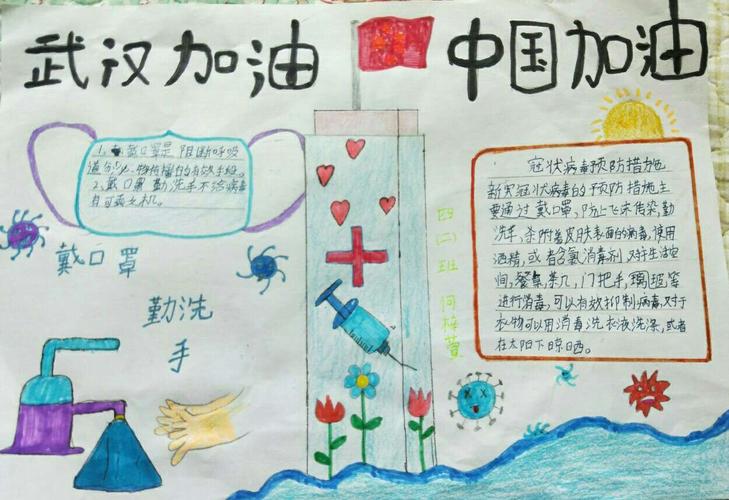 武汉加油
中国加油
1、戴口罩是阻断呼吸
道分泌物传播的有效手段。
2、戴口罩勤洗手不给病毒
有可乘之机。
戴口罩
勤洗
手
四(二)班 何梓萱
冠状病毒预防措施
新型冠状病毒的预防措施主
要通过戴口罩,防止飞沫传染,勤
洗手,杀附着皮肤表面的病毒,使用
酒精,或者含氯消毒剂对于生活空
间,餐桌,茶几,门把手,玻等
进行消毒,可以有效抑制病毒,对于
衣物可以用消毒洗衣液洗涤,或者
在太阳下晾晒。